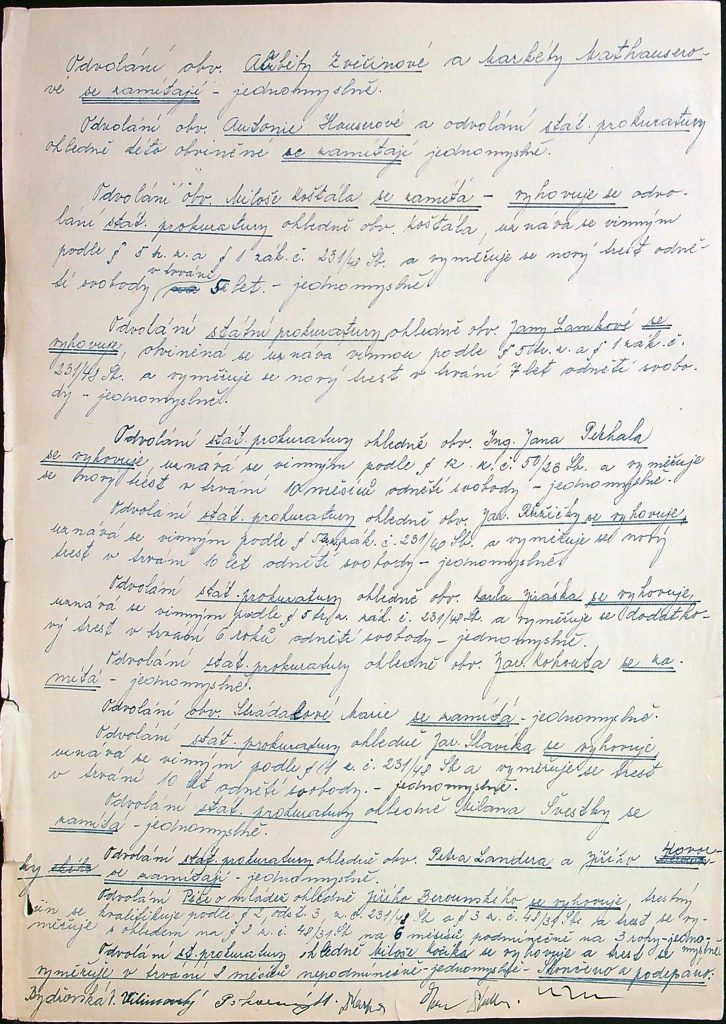 Odvolání obv. Alžběty Zvěřinové a Markéty Mathausero-
vé se zamítají - jednomyslně.
Odvolání obv. Antonie Hauserové a odvolání stát. prokuratury
ohledně této obviněné se zamítají jednomyslně.
Odvolání obv. Miloše Koštála se zamítá - vyhovuje se odvo-
lání stát. prokuratury ohledně obv. Koštála, uznává se vinným
podle § 5 tr. z. a § 1 zák. č. 231/48 Sb. a vyměřuje se nový trest odně-
tí svobody v trvání 5 let. - jednomyslně
Odvolání státní prokuratury ohledně obv. Jany Lamkové se
vyhovuje, obviněná se uznává vinnou podle § 5 tr. z. a § 1 zák. č.
231/48 Sb. a vyměřuje se nový trest v trvání 7 let odnětí svobo-
dy - jednomyslně.
Odvolání stát. prokuratury ohledně obv. Ing. Jana
se vyhovuje uznává se vinným podle § 12 z. č. 50/23 Sb. a vyměřuje
se nový trest v trvání 10 měsíců odnětí svobody - jednomyslně.
Odvolání stát. prokuratury ohledně obv. Jar. Růžičky se vyhovuje,
uznává se vinným podle § zák. č. 231/48 Sb. a vyměřuje se nový
trest v trvání 10 let odnětí svobody - jednomyslně
Odvolání stát. prokuratury ohledně obv. Karla Jiraska se vyhovuje,
uznává se vinným podle § 5 tr. z. zák. č. 231/48 Sb. a vyměřuje se dodatko-
vý trest v trvání 6 roků odnětí svobody - jednomyslně.
Odvolání stát. prokuratury ohledně obv. Jar. Kohouta se za-
mítá - jednomyslně.
Odvolání obv. Strádalové Marie se zamítá - jednomyslně.
Odvolání stát. prokuratury ohledně Jar. Slavíka se vyhovuje,
uznává se vinným podle § 1 z. č. 231/48 Sb. a vyměřuje se trest
v trvání 10 let odnětí svobody. - jednomyslně.
Odvolání stát. prokuratury ohledně Milana Švestky se
zamítá - jednomyslně.
Odvolání stát. prokuratury ohledně obv. Petra Landera a Jiřího Hovor-
ky se zamítají - jednomyslně.
Odvolání Péče o mládež ohledně Jiřího Berounského se vyhovuje, trestný
čin se kvalifikuje podle § 2, odst. 3, z. č. 231/48 Sb. a § 3 z. č. 48/31 Sb. a trest se vy-
měřuje s ohledem na § 8 z. č. 48/31 Sb. na 6 měsíců podmíněně na 3 roky - jedno-
myslně.
Odvolání st. prokuratury ohledně Miloše se vyhovuje a trest se
vyměřuje v trvání 8 měsíců nepodmíněně - jednomyslně - Skončeno a podepsáno.